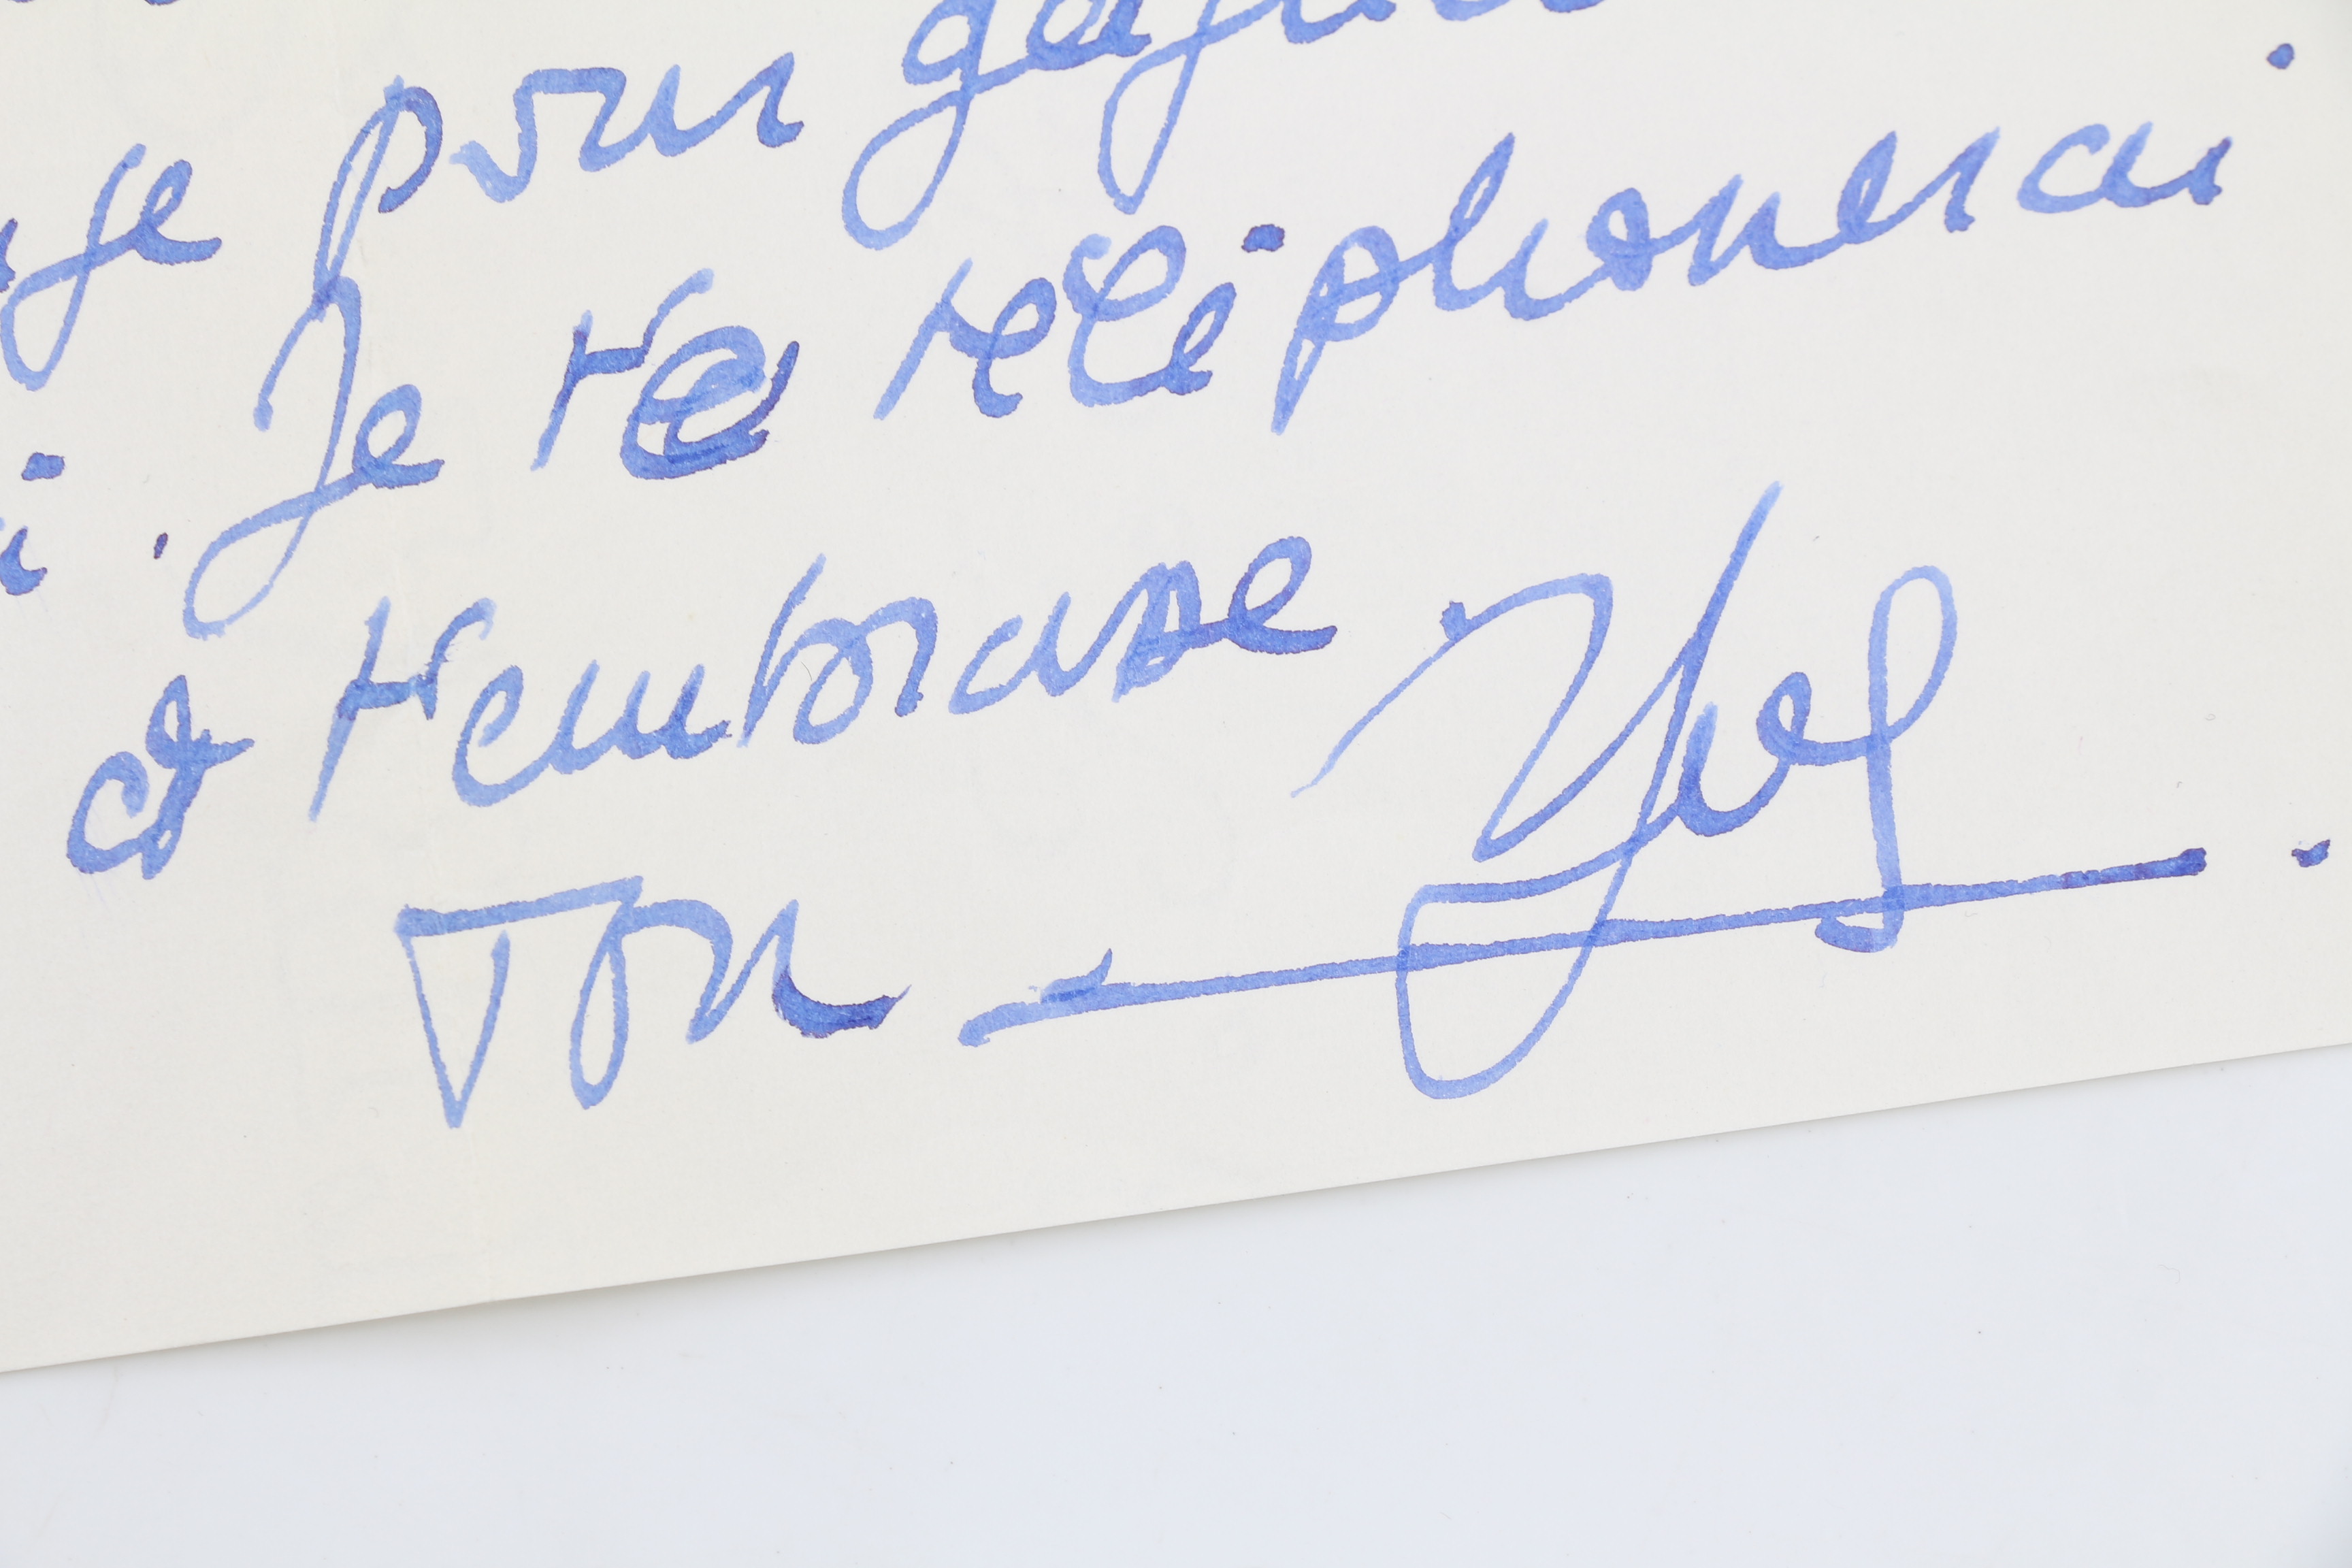 pour
Je te téléphonerai
et t'embrasse
Ton Yves.